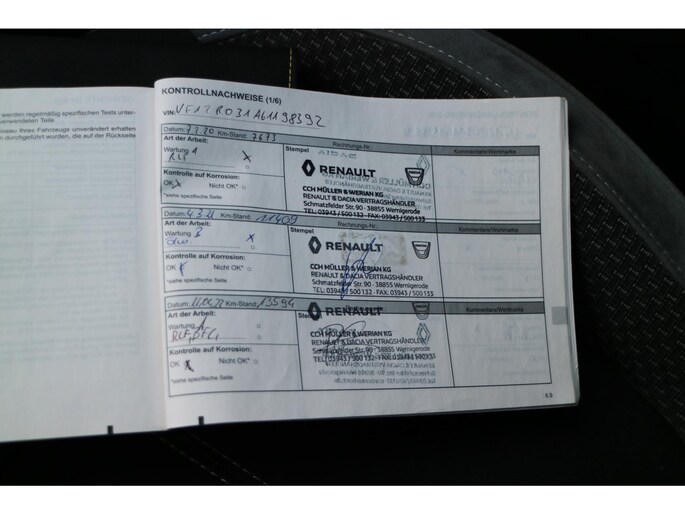 werden regelmäßig spezifischen Tests unter-
verwendeten Teile
niveau Ihres Fahrzeugs unverändert erhalten
durchgeführt wurden, die auf der Rückseite
KONTROLLNACHWEISE (1/6)
VIN: VF12R031A61198392
Datum: 7.2.20 Km-Stand: 7673 Rechnungs-Nr.: Kommentare/Wertmarke
Art der Arbeit: Stempel
Wartung 1
Kontrolle auf Korrosion:
OK Nicht OK*
*siehe spezifische Seite
RENAULT
CCH MÜLLER & WERIAN KG
RENAULT & DACIA VERTRAGSHÄNDLER
Schmatzfelder Str. 90 - 38855 Wernigerode
TEL: 03943 / 500 132 - FAX: 03943 / 500 133
Datum: 4.3.21 Km-Stand: 11409 Rechnungs-Nr.: Kommentare/Wertmarke
Art der Arbeit: Stempel
Wartung
Kontrolle auf Korrosion:
OK Nicht OK*
*siehe spezifische Seite
RENAULT
CCH MÜLLER & WERIAN KG
RENAULT & DACIA VERTRAGSHÄNDLER
Schmatzfelder Str. 90 - 38855 Wernigerode
TEL: 03943 / 500 132 - FAX: 03943 / 500 133
Datum: 11.04.22 Km-Stand: 13594 Kommentare/Wertmarke
Art der Arbeit: Stempel
Wartung
Kontrolle auf Korrosion:
OK Nicht OK*
*siehe spezifische Seite
RENAULT
CCH MÜLLER & WERIAN KG
RENAULT & DACIA VERTRAGSHÄNDLER
Schmatzfelder Str. 90 - 38855 Wernigerode
TEL: 03943 / 500 132 - FAX: 03943 / 500 133